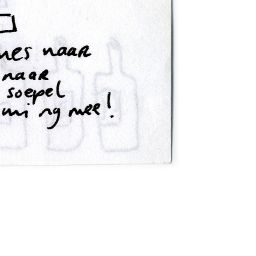 mes naar
naar
soepel
mi ng mee!